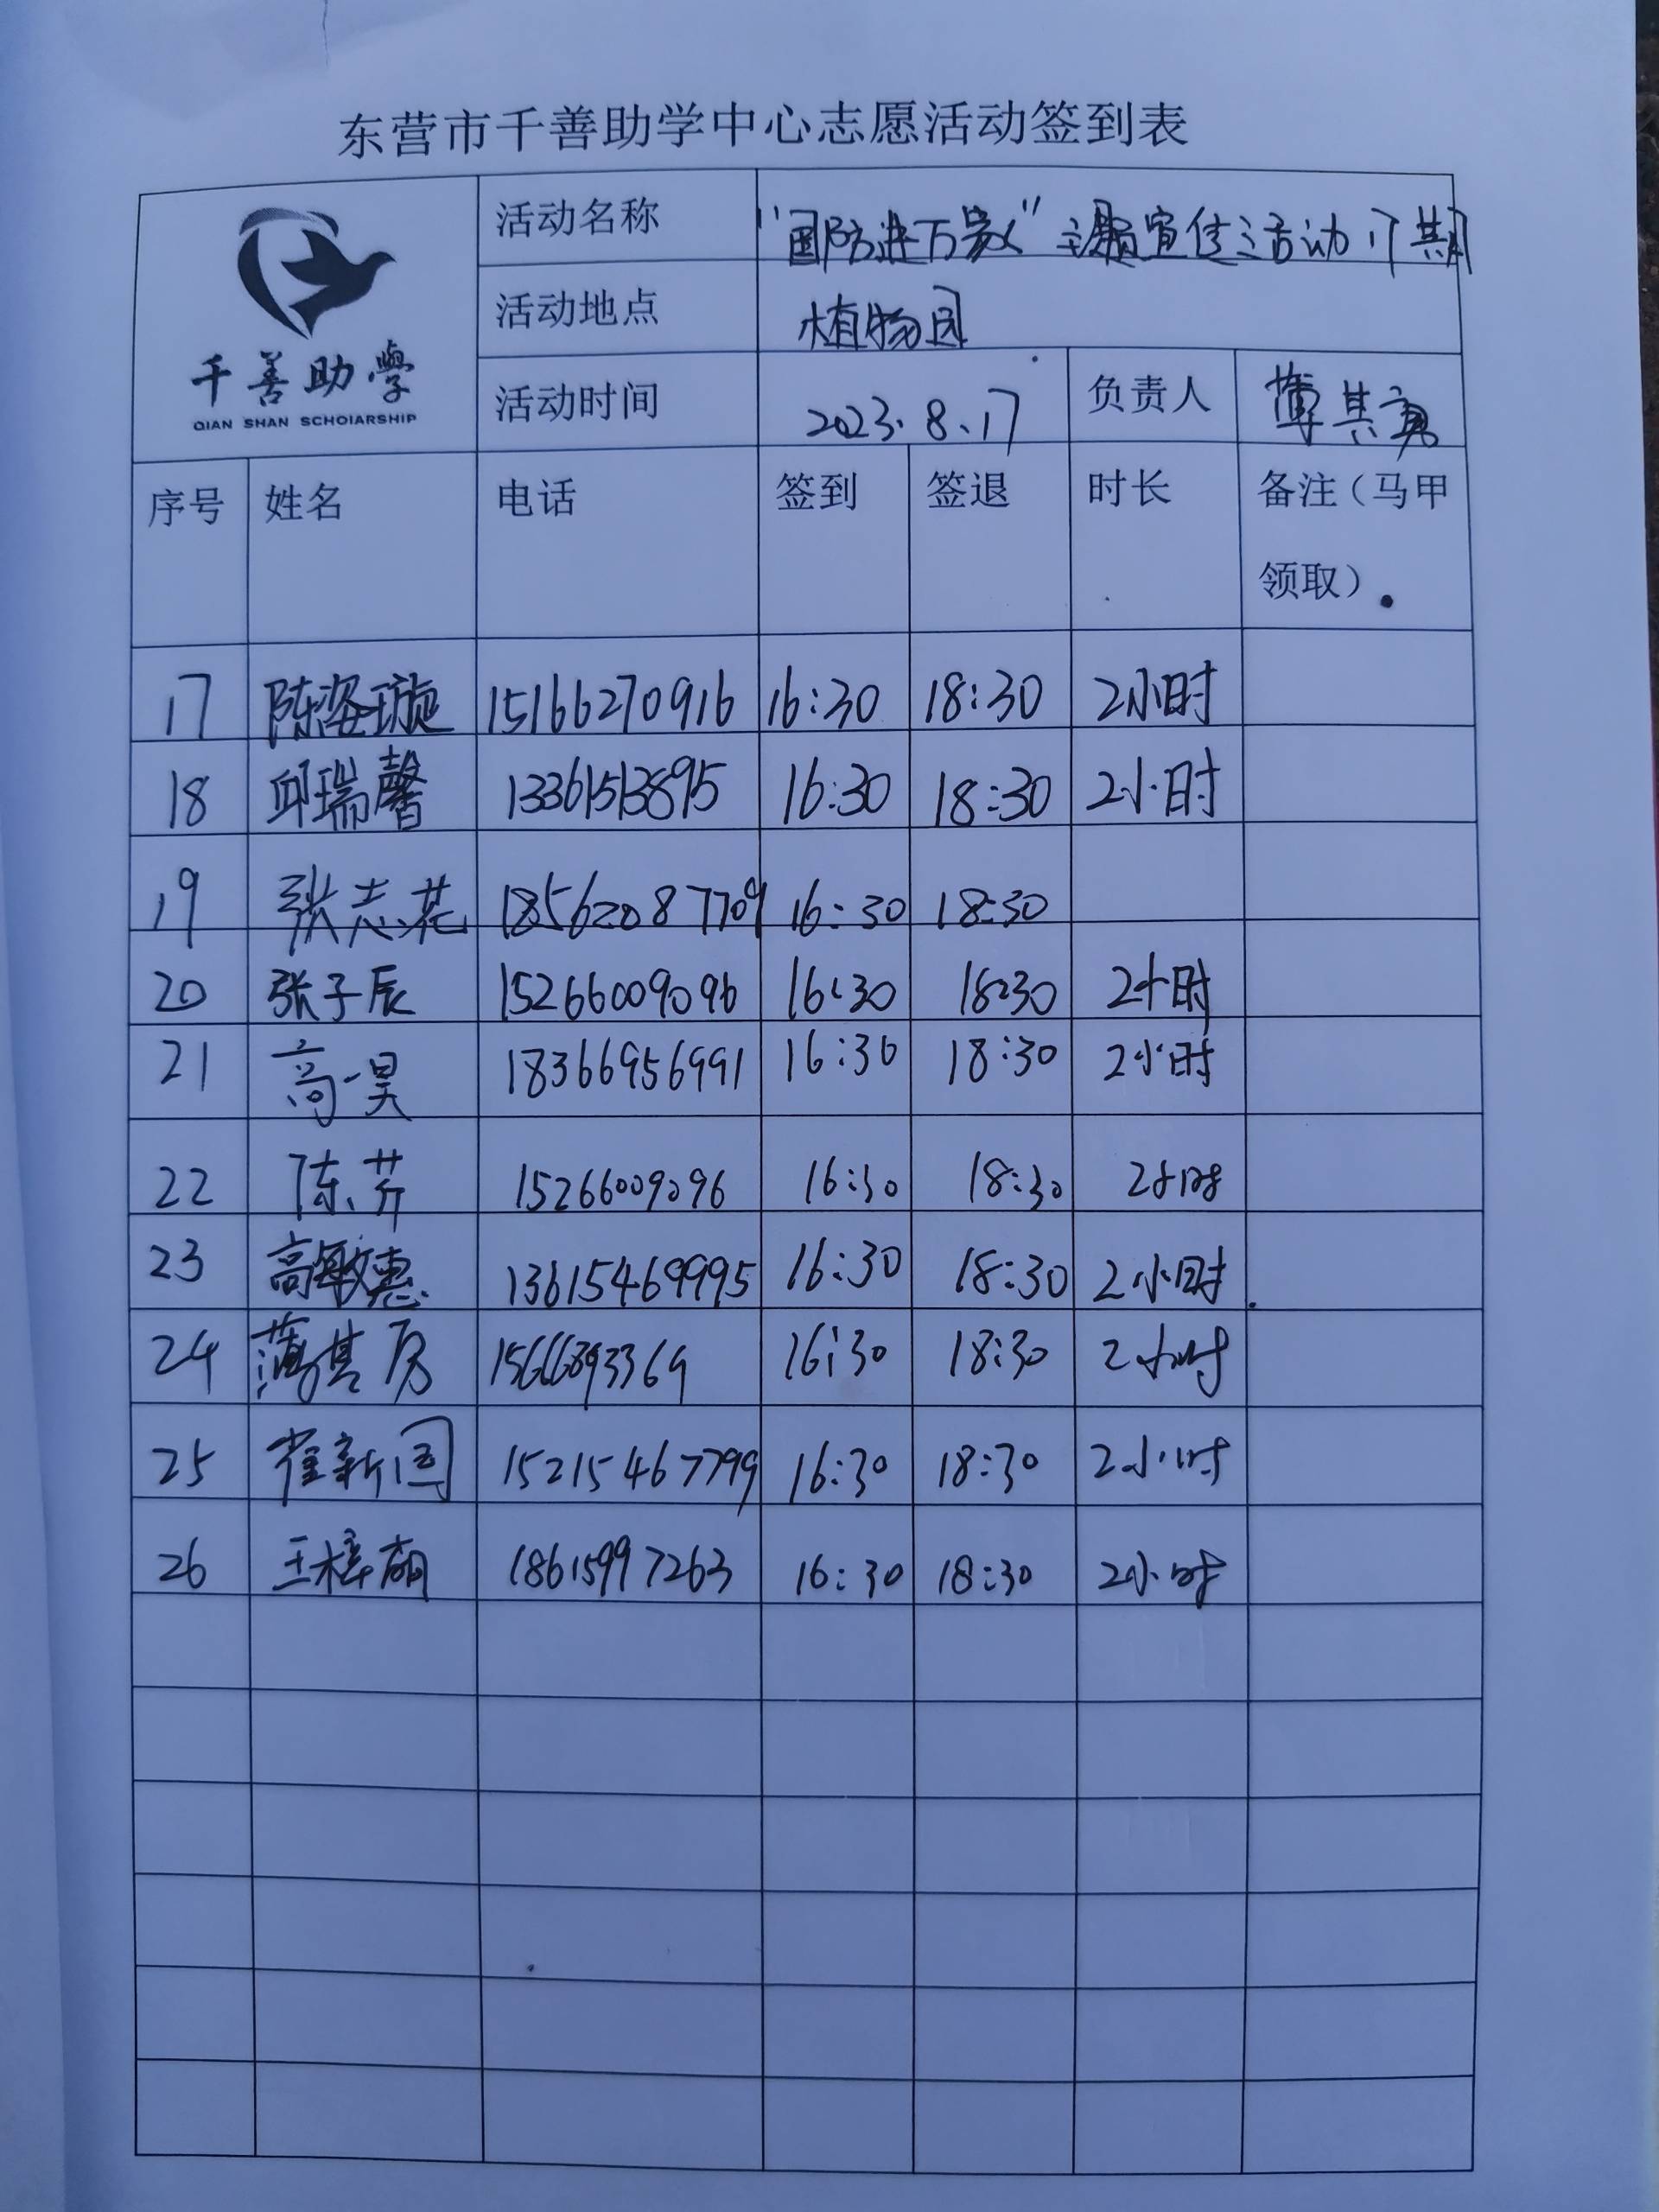 东营市千善助学中心志愿活动签到表
千善助學
QIAN SHAN SCHOIARSHIP
活动名称 "国防进万家" 主题宣传活动 期
活动地点 植物园
活动时间 2023.8.17 负责人 薄其勇
序号 姓名 电话 签到 签退 时长 备注（马甲
领取）
17 陈姿璇 15166270916 16:30 18:30 2小时
18 邱瑞馨 13361513895 16:30 18:30 2小时
19 张志花 18562087709 16:30 18:30
20 张子辰 15266009096 16:30 18:30 2小时
21 高一昊 18366956991 16:30 18:30 2小时
22 陈芹 15266009096 16:30 18:30 2小时
23 高敏惠 13615469995 16:30 18:30 2小时
24 薄其房 15666893369 16:30 18:30 2小时
25 崔新国 15215467799 16:30 18:30 2小时
26 王梓萌 18615997263 16:30 18:30 2小时